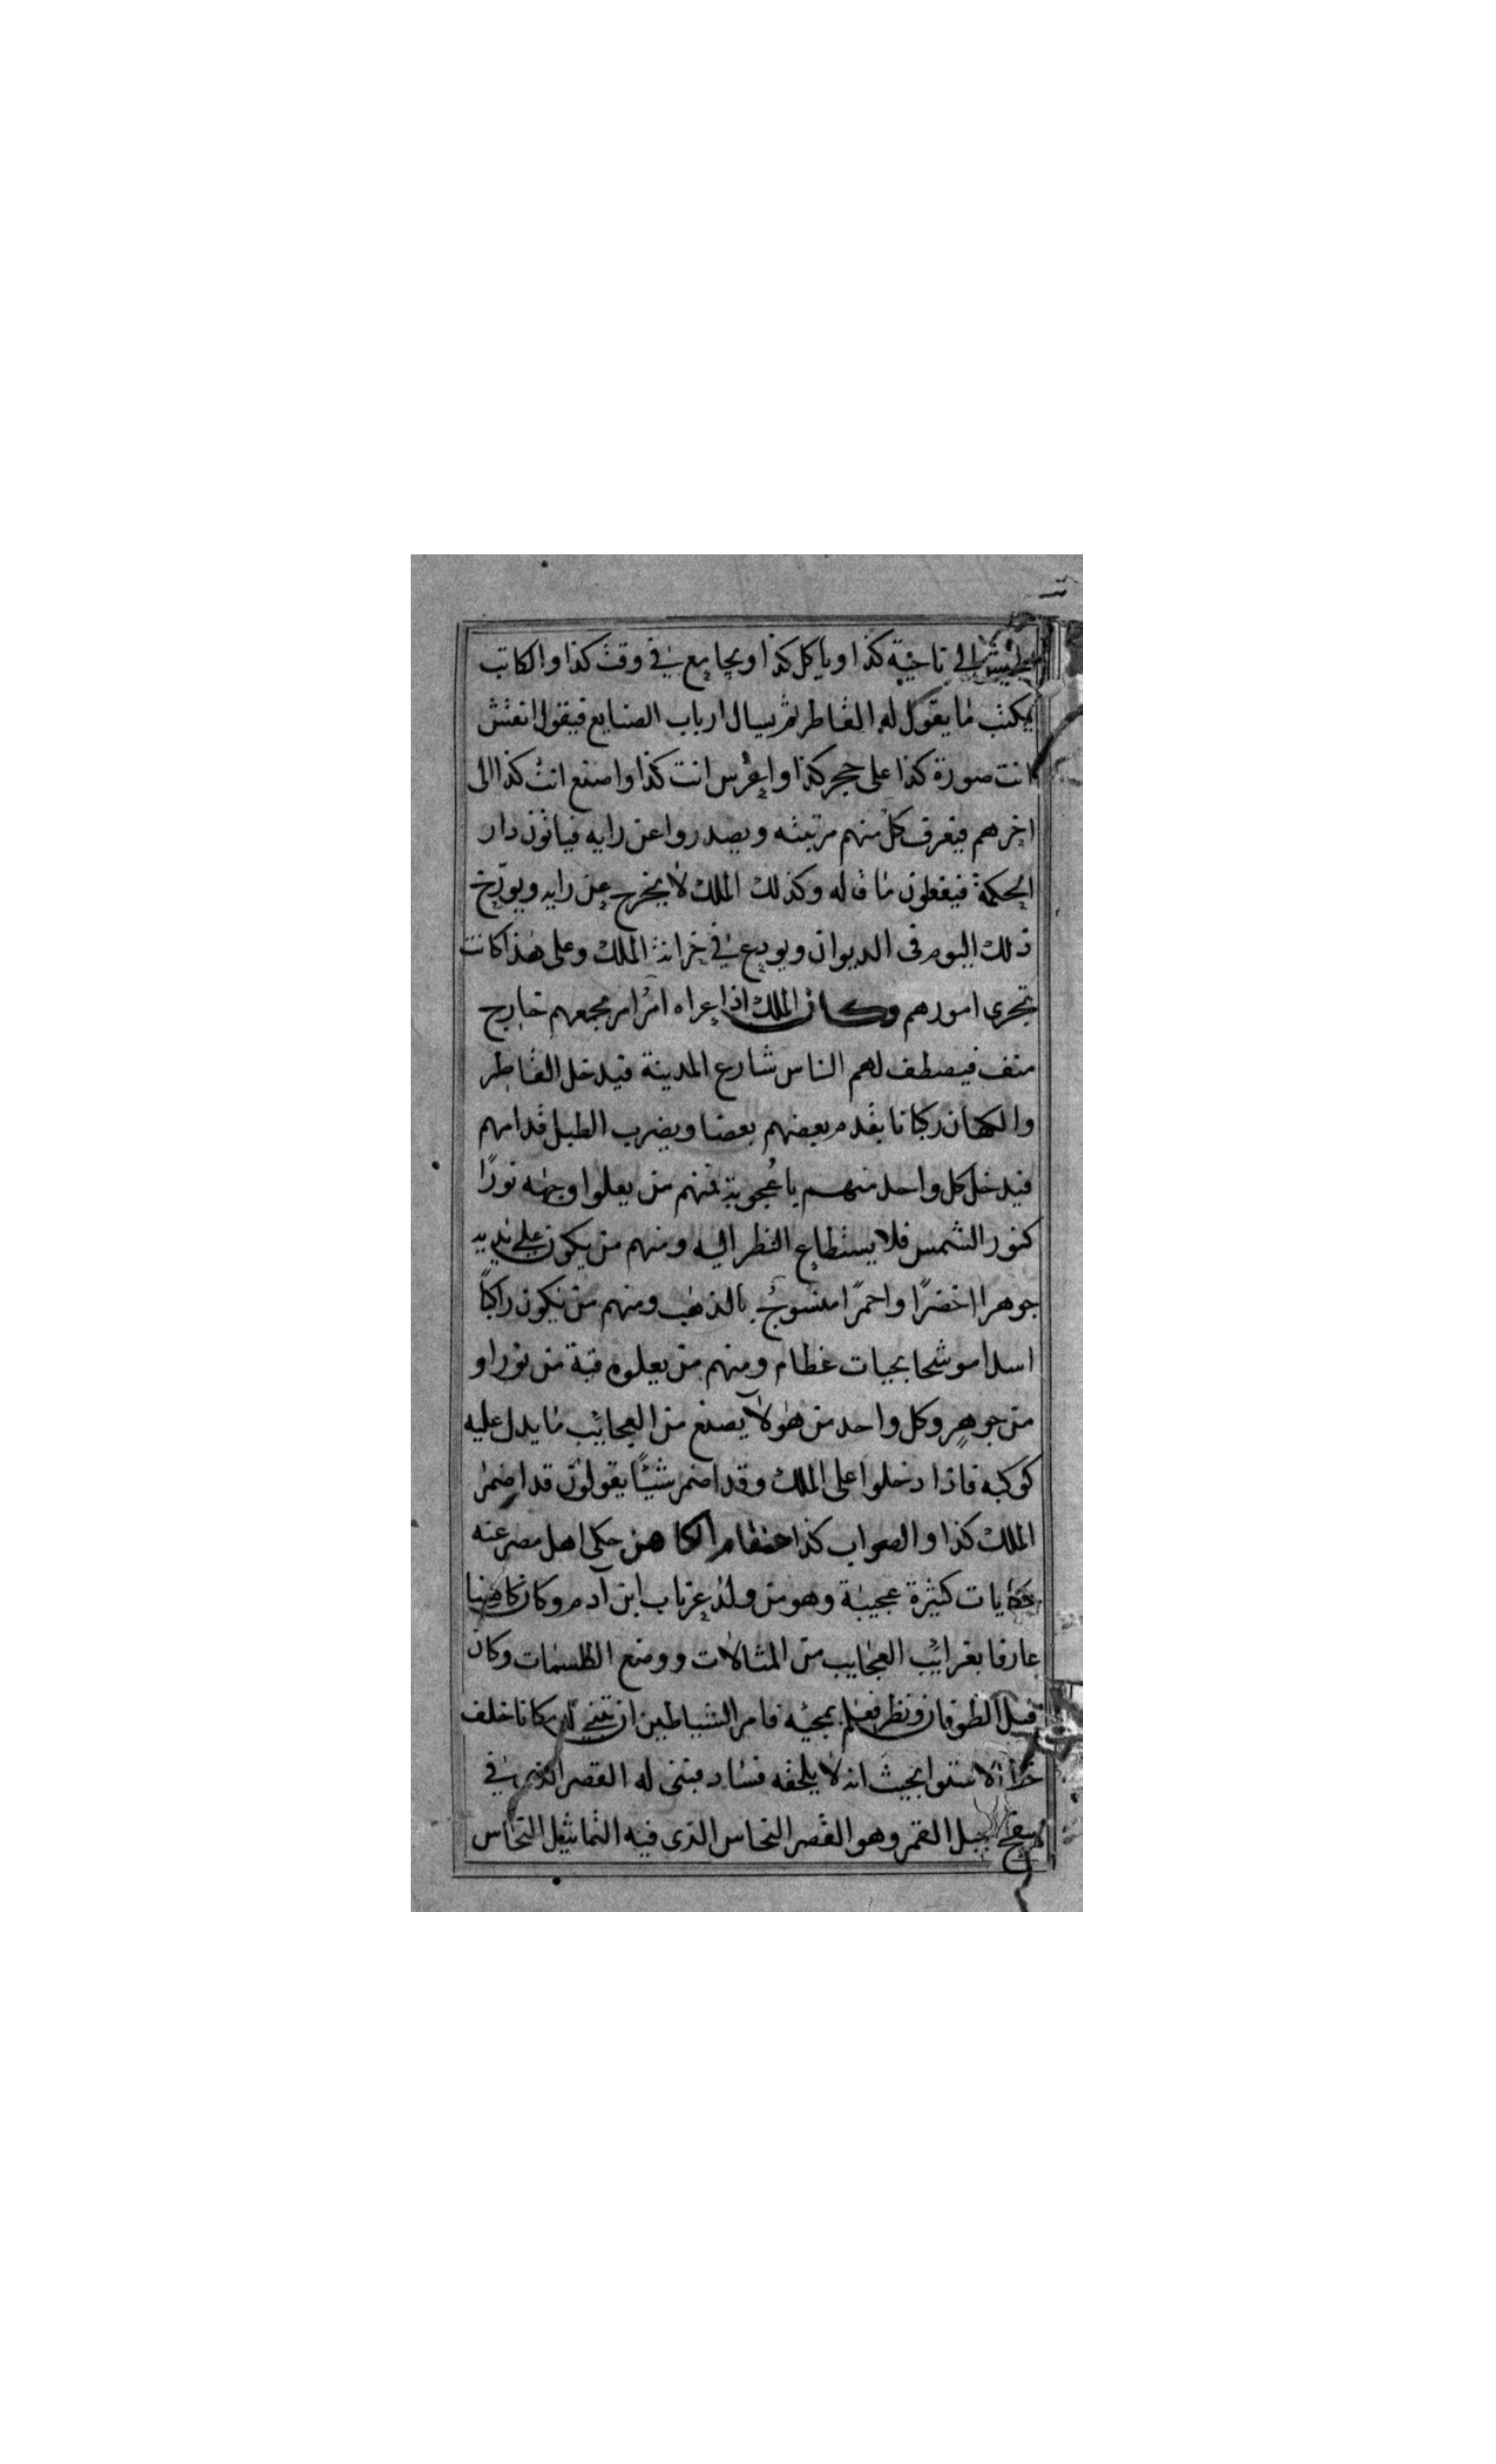 الى ناحية كذا وياكل كذا ويجامع في وقت كذا والكاتب
يكتب ما يقول له القاطر ثم يسال ارباب الصنايع فيقول انقش
انت صورة كذا على حجر كذا واغرس انت كذا واصنع انت كذا الى
اخرهم فيعرف كل منهم مرتبته ويصدروا عن رايه فياتون دار
الحكمة فيفعلون ما قاله وكذلك الملك لا يخرج عن رايه ويورخ
ذلك اليوم فى الديوان ويودع في خزانة الملك وعلى هذا كانت
تجرى امورهم وكان الملك اذا عراه امرا امر بجمعهم خارج
منف فيصطف لهم الناس شارع المدينة فيدخل القاطر
والكهان ركبانا يقدم بعضهم بعضا ويضرب الطبل قدامهم
فيدخل كل واحد منهم باعجوبة فمنهم من يعلوا وجهه نورًا
كنور الشمس فلا يستطاع النظر اليه ومنهم من يكون على يديه
جوهرا اخضرًا واحمرًا منسوج بالذهب ومنهم من يكون راكبًا
اسدا موشحا بحيات عظام ومنهم من يعلوه قبة من نور او
من جوهر وكل واحد من هولآ يصنع من العجائب ما يدل عليه
كوكبه فاذا دخلوا على الملك وقد اضمر شيئًا يقولون قد اضمر
الملك كذا والصواب كذا عنقام الكاهن حكى اهل مصر عنه
حكايات كثيرة عجيبة وهو من ولد عرباب ابن آدم وكان كاهنا
عارفا بغرائب العجايب من المثالات ووضع الطلسمات وكان
قبل الطوفان ونظر فعلم بمجيه فامر الشياطين ان تبني له مكانا خلف
خط الاستوا بحيث انه لا يلحقه فساد فبنى له القصر الذى في
سفح جبل القمر وهو القصر النحاس الذى فيه التماثيل النحاس